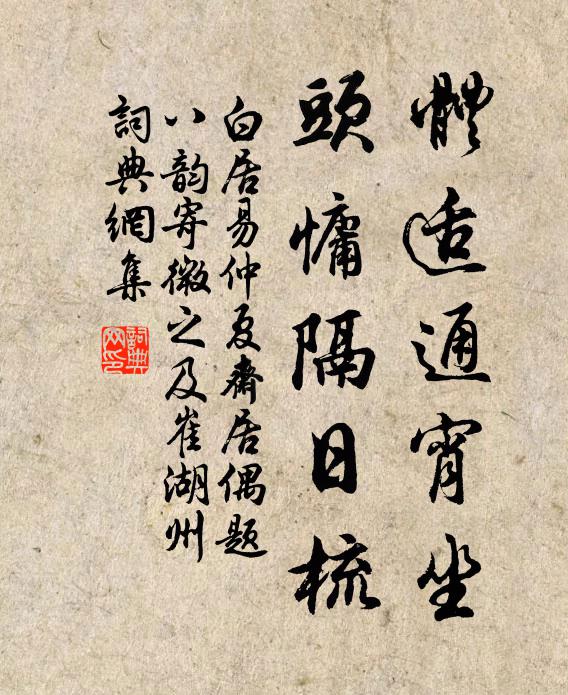 體适通宵坐
頭慵隔日梳
白居易仲夏齋居偶題
八韵寄微之及崔湖州
詞典網集
詞典網印